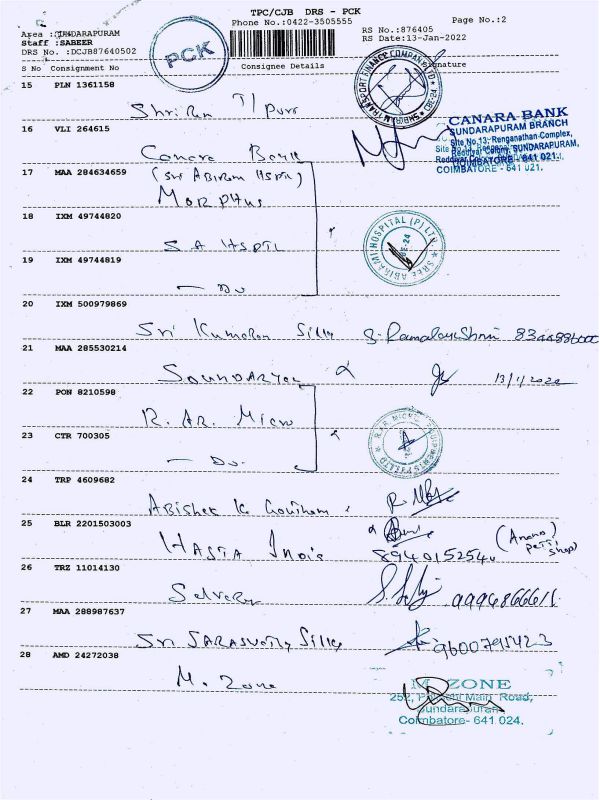 TPC/CJB DRS - PCK
Phone No.:0422-3505555
Page No.:2
Area : SUNDARAPURAM
RS No.:876405
Staff : SABEER
RS Date:13-Jan-2022
DRS No. :DCJB87640502
PCK
S No Consignment No
Consignee Details
Signature
15 PLN 1361158
Shri Ram T/port
SHRIRAM TRANSPORT FINANCE COMPANY LTD
CBE-24
16 VLI 264615
Canara Bank
CANARA BANK
SUNDARAPURAM BRANCH
Site No.13, Renganathan Complex,
SUNDARAPURAM,
COIMBATORE - 641 021.
17 MAA 284634659
(Sri ABIRAMI HSPTL)
MORPHUS
18 IXM 49744820
S A HSPTL
SREE ABIRAMI HOSPITAL (P) LTD
CBE-24
19 IXM 49744819
- Do
20 IXM 500979869
Sri Kumaran Silks
21 MAA 285530214
SOUNDARYA
13/1/2022
22 PON 8210598
R. AR. Micro
23 CTR 700305
- Do.
24 TRP 4609682
Abishek K Goutham
25 BLR 2201503003
HASTA India
8940152540
shop)
26 TRZ 11014130
Selvery
27 MAA 288987637
Sri SARASWATHY Silks
9600795423
28 AMD 24272038
M. Zone
M ZONE
Main Road,
Sundarapuram
Coimbatore- 641 024.